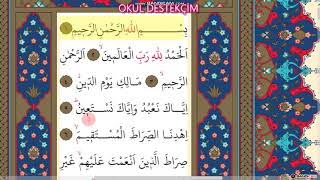 OKUL DESTEKCİM
بِسْمِ اللّٰهِ الرَّحْمٰنِ الرَّحِيمِ ﴿١﴾
اَلْحَمْدُ لِلّٰهِ رَبِّ الْعَالَمِينَۙ ﴿٢﴾ اَلرَّحْمٰنِ
الرَّحِيمِۙ ﴿٣﴾ مَالِكِ يَوْمِ الدِّينِۜ ﴿٤﴾
اِيَّاكَ نَعْبُدُ وَاِيَّاكَ نَسْتَعِينُۜ ﴿٥﴾
اِهْدِنَا الصِّرَاطَ الْمُسْتَقِيمَۙ ﴿٦﴾
صِرَاطَ الَّذِينَ اَنْعَمْتَ عَلَيْهِمْ غَيْرِ